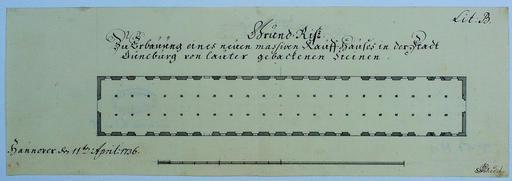 Lit. B.
Grund-Riß
Zu Erbauung eines neuen massiven Kauff-Hauses in der Stadt
Lüneburg von lauter gebackenen Steinen.
Hannover, d. 11ten April. 1736.